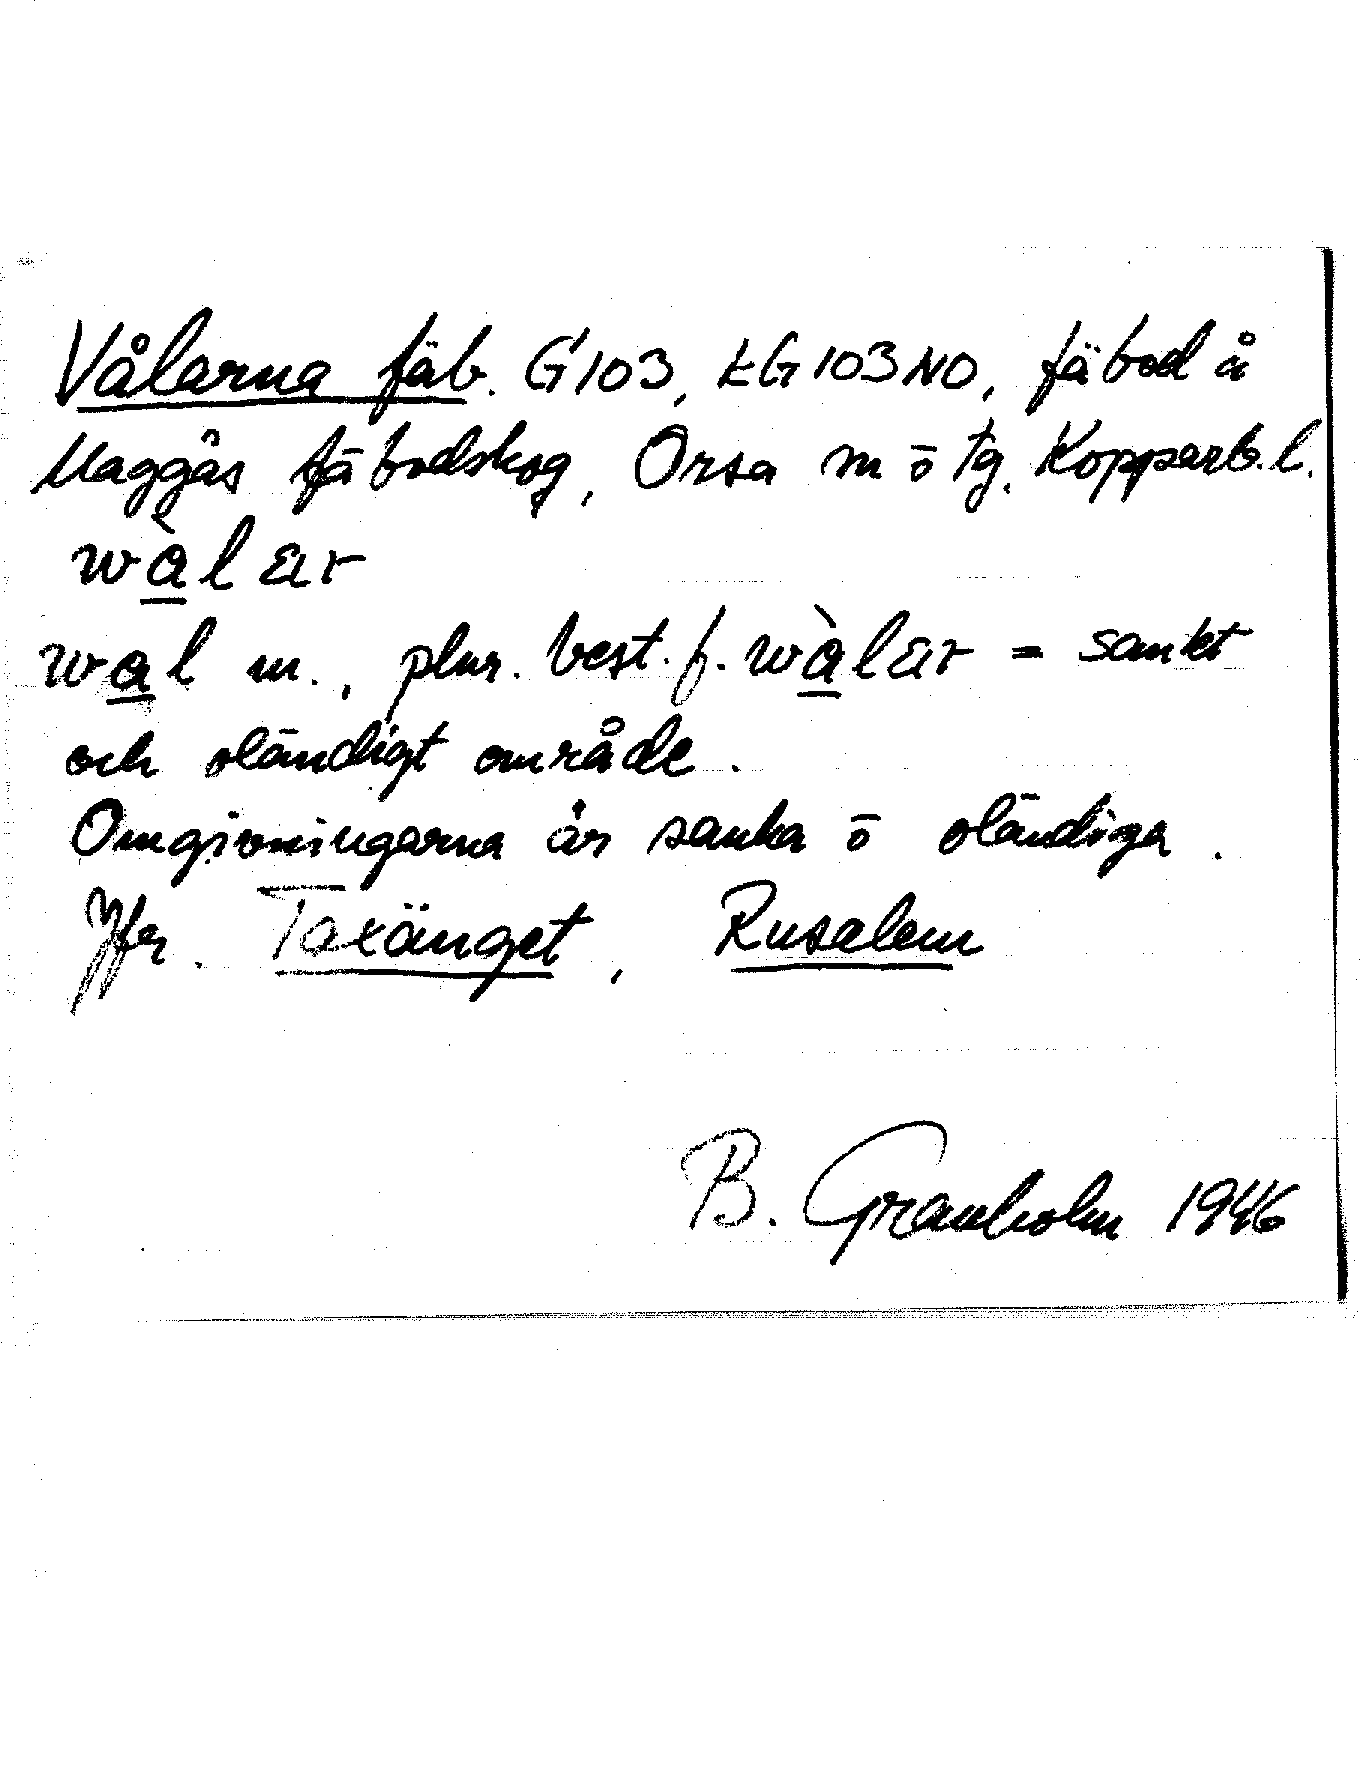 Vålarna fäb. G103, EG103NO, fäbod å
Maggås fäbodskog, Orsa m ō tg. Kopparb.l.
wàlar
wal m., plur. best. f. wàlar = sankt
och oländigt område.
Omgivningarna är sanka ō oländiga.
Jfr. Taxänget, Rusalem
B. Granholm 1946